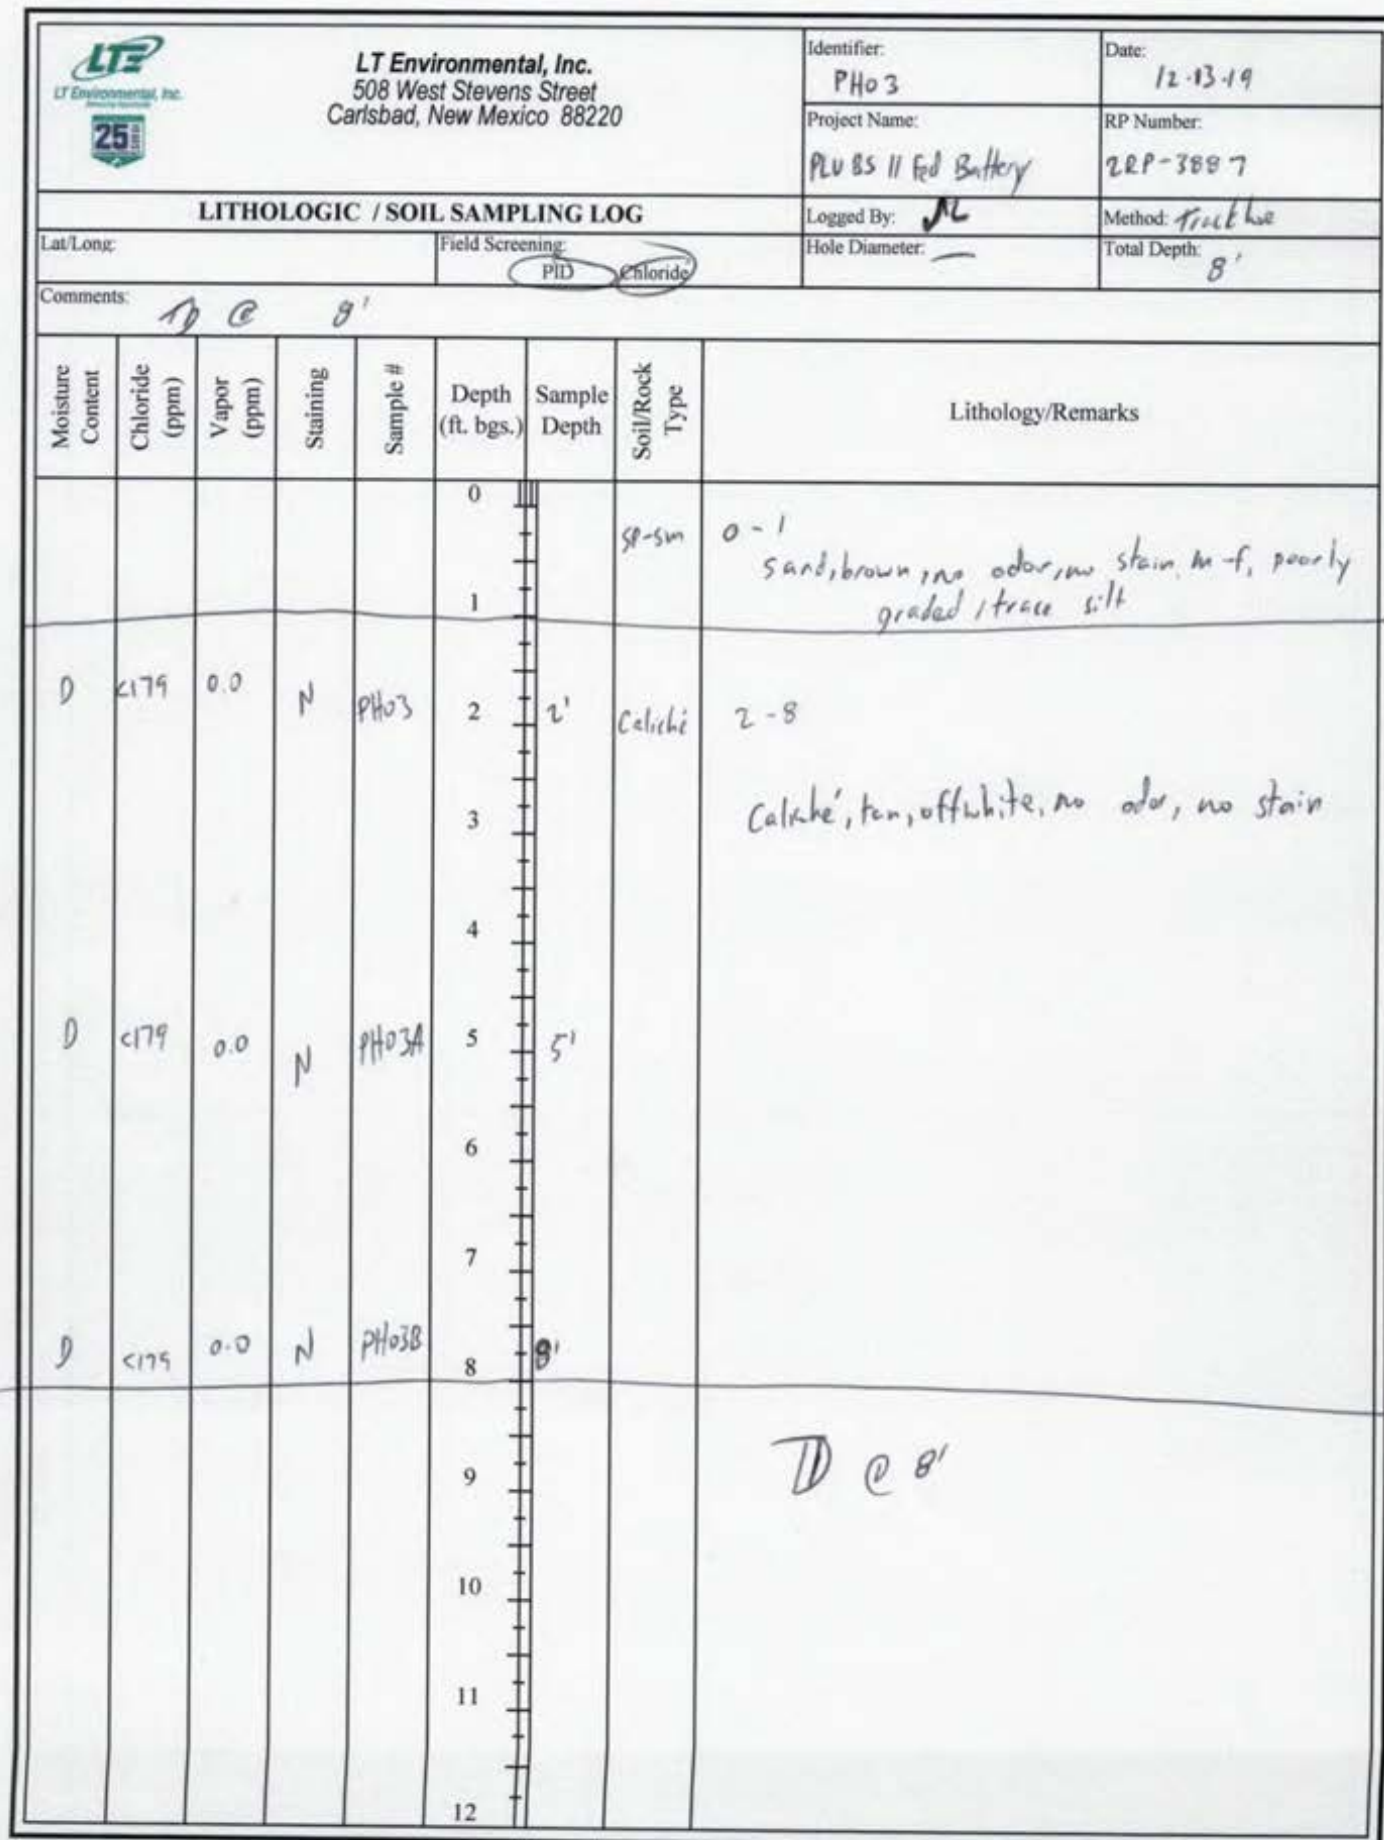 LTE
LT Environmental, Inc.
25
LT Environmental, Inc.
508 West Stevens Street
Carlsbad, New Mexico 88220
Identifier:
PH03
Date:
12-13-19
Project Name:
PLU BS 11 Fed Battery
RP Number:
2RP-3887
LITHOLOGIC / SOIL SAMPLING LOG
Logged By:
Method: Track hoe
Lat/Long:
Field Screening:
PID Chloride
Hole Diameter: —
Total Depth:
8'
Comments:
TD @ 8'
Moisture Content
Chloride (ppm)
Vapor (ppm)
Staining
Sample #
Depth (ft. bgs.)
Sample Depth
Soil/Rock Type
Lithology/Remarks
0
SP-SM 0 - 1
sand, brown, no odor, no stain, m-f, poorly
1
graded, trace silt
D <179 0.0 N PH03 2 2' Caliche 2 - 8
3
Caliché, tan, offwhite, no odor, no stain
4
D <179 0.0 N PH03A 5 5'
6
7
D <179 0.0 N PH03B 8 8'
9
TD @ 8'
10
11
12